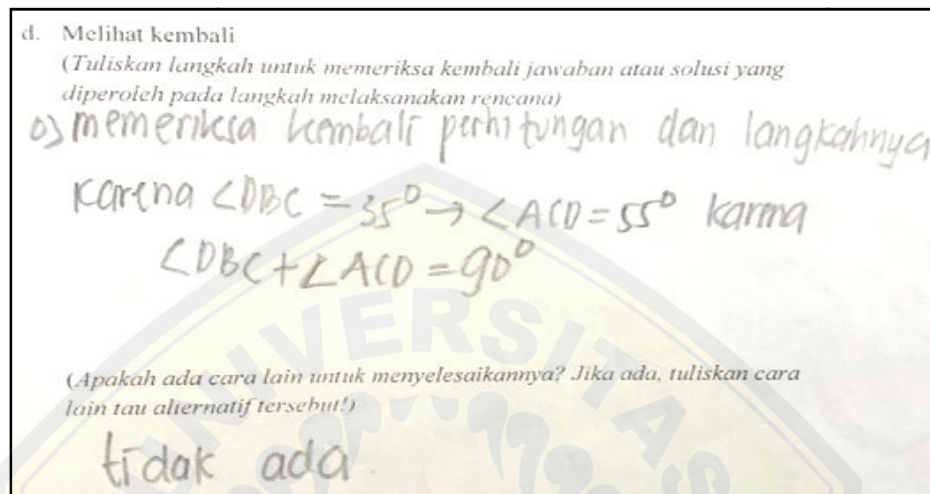 d. Melihat kembali
(Tuliskan langkah untuk memeriksa kembali jawaban atau solusi yang
diperoleh pada langkah melaksanakan rencana)
o) memeriksa kembali perhitungan dan langkahnya
Karena ∠DBC = 35° → ∠ACD = 55° karna
∠DBC + ∠ACD = 90°
(Apakah ada cara lain untuk menyelesaikannya? Jika ada, tuliskan cara
lain tau alternatif tersebut!)
tidak ada